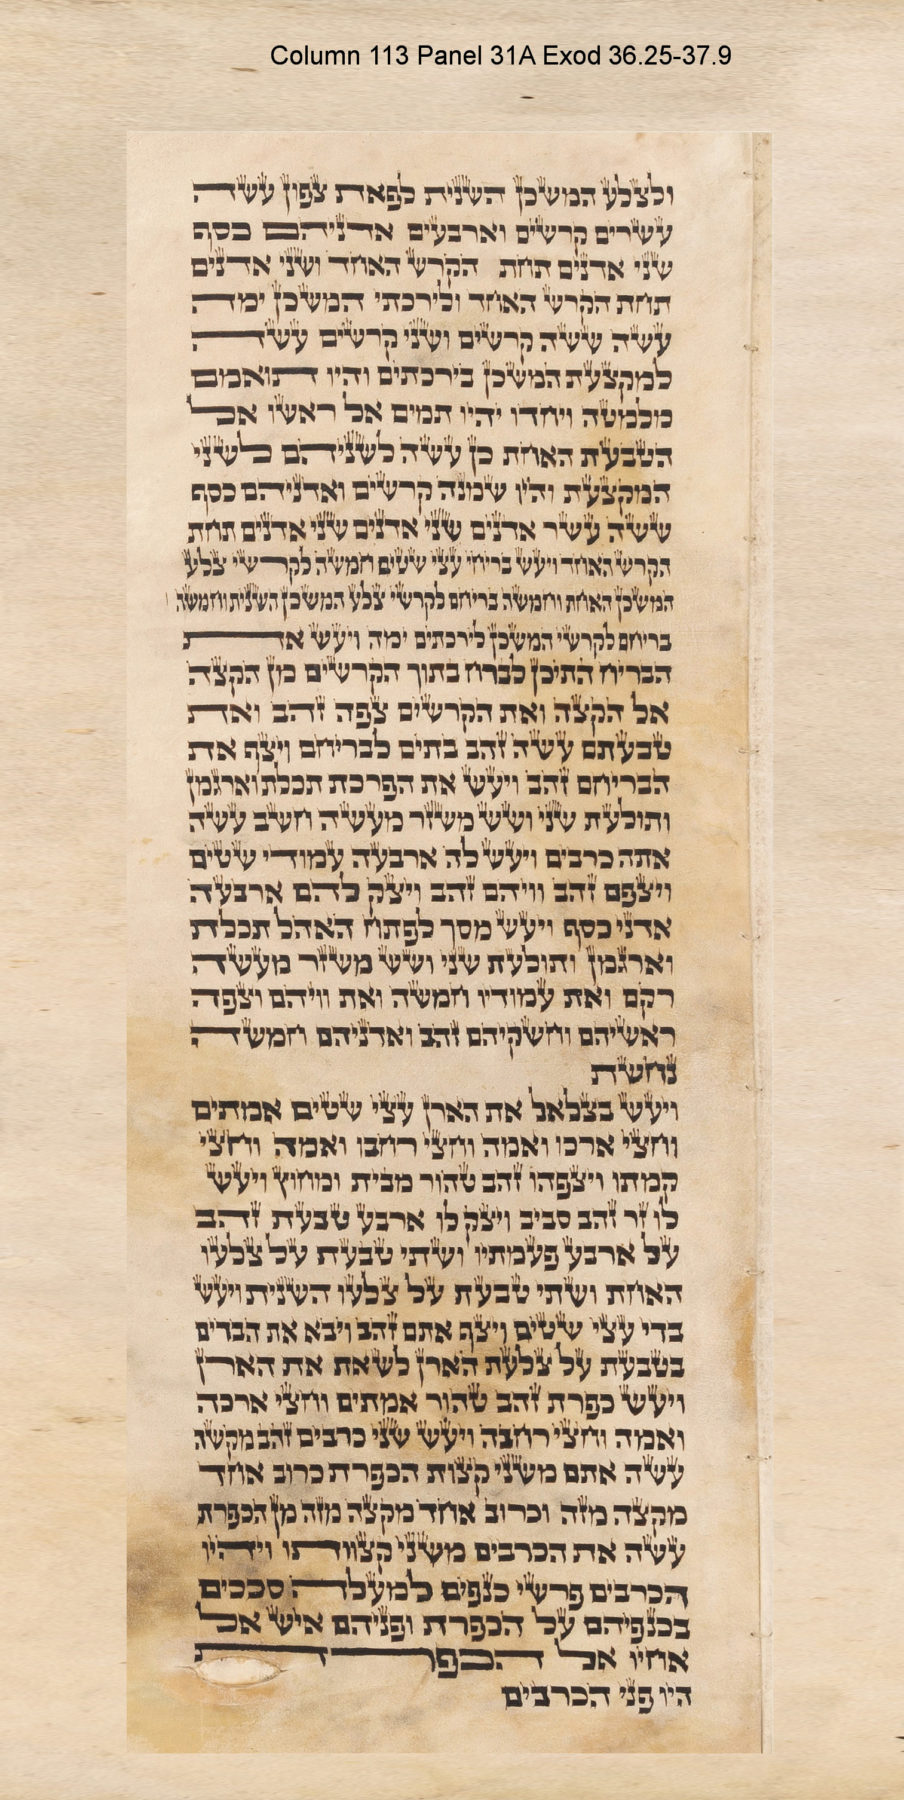 Column 113 Panel 31A Exod 36.25-37.9
ולצלע המשכן השנית לפאת צפון עשה
עשרים קרשים וארבעים אדניהם כסף
שני אדנים תחת הקרש האחד ושני אדנים
תחת הקרש האחד ולירכתי המשכן ימה
עשה ששה קרשים ושני קרשים עשה
למקצעת המשכן בירכתים והיו תואמם
מלמטה ויחדו יהיו תמים אל ראשו אל
הטבעת האחת כן עשה לשניהם לשני
המקצעת והיו שמנה קרשים ואדניהם כסף
ששה עשר אדנים שני אדנים שני אדנים תחת
הקרש האחד ויעש בריחי עצי שטים חמשה לקרשי צלע
המשכן האחת וחמשה בריחם לקרשי צלע המשכן השנית וחמשה
בריחם לקרשי המשכן לירכתים ימה ויעש את
הבריח התיכן לברח בתוך הקרשים מן הקצה
אל הקצה ואת הקרשים צפה זהב ואת
טבעתם עשה זהב בתים לבריחם ויצף את
הבריחם זהב ויעש את הפרכת תכלת וארגמן
ותולעת שני ושש משזר מעשה חשב עשה
אתה כרבים ויעש לה ארבעה עמודי שטים
ויצפם זהב וויהם זהב ויצק להם ארבעה
אדני כסף ויעש מסך לפתח האהל תכלת
וארגמן ותולעת שני ושש משזר מעשה
רקם ואת עמודיו חמשה ואת וויהם וצפה
ראשיהם וחשקיהם זהב ואדניהם חמשה
נחשת
ויעש בצלאל את הארן עצי שטים אמתים
וחצי ארכו ואמה וחצי רחבו ואמה וחצי
קמתו ויצפהו זהב טהור מבית ומחוץ ויעש
לו זר זהב סביב ויצק לו ארבע טבעת זהב
על ארבע פעמתיו ושתי טבעת על צלעו
האחת ושתי טבעת על צלעו השנית ויעש
בדי עצי שטים ויצף אתם זהב ויבא את הבדים
בטבעת על צלעת הארן לשאת את הארן
ויעש כפרת זהב טהור אמתים וחצי ארכה
ואמה וחצי רחבה ויעש שני כרבים זהב מקשה
עשה אתם משני קצות הכפרת כרוב אחד
מקצה מזה וכרוב אחד מקצה מזה מן הכפרת
עשה את הכרבים משני קצוותו ויהיו
הכרבים פרשי כנפים למעלה סככים
בכנפיהם על הכפרת ופניהם איש אל
אחיו אל הכפרת
היו פני הכרבים